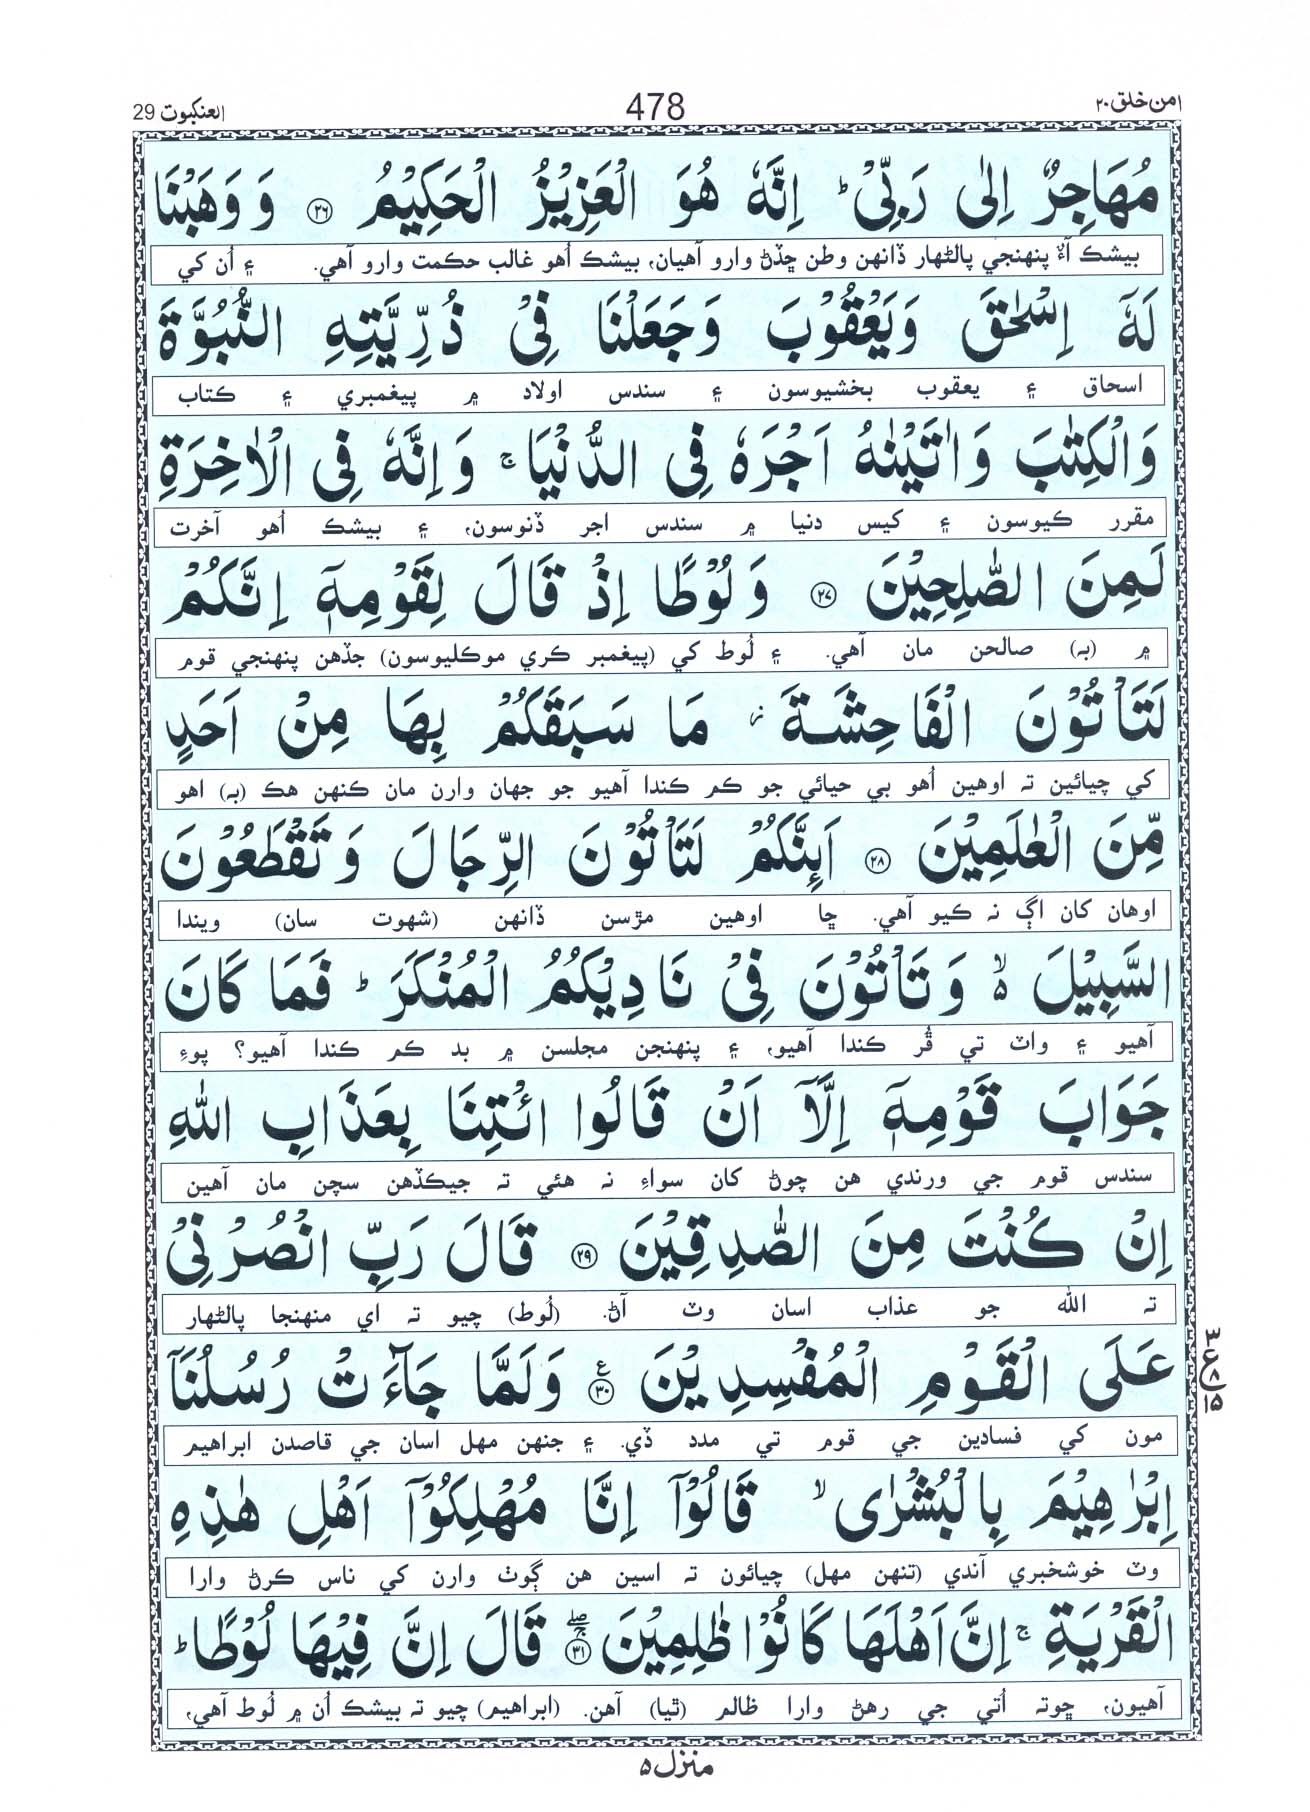 امن خلق ۲۰ 478 العنکبوت 29
مُهَاجِرٌ اِلٰى رَبِّىْ ؕ اِنَّهٗ هُوَ الْعَزِيْزُ الْحَكِيْمُ ۝۲۶ وَ وَهَبْنَا
بيشڪ آءٌ پنھنجي پالڻھار ڏانھن وطن ڇڏڻ وارو آھيان، بيشڪ اُھو غالب حڪمت وارو آھي. ۽ اُن کي
لَهٗۤ اِسْحٰقَ وَيَعْقُوْبَ وَجَعَلْنَا فِىْ ذُرِّيَّتِهِ النُّبُوَّةَ
اسحاق ۽ يعقوب بخشيوسون ۽ سندس اولاد ۾ پيغمبري ۽ ڪتاب
وَالْكِتٰبَ وَاٰتَيْنٰهُ اَجْرَهٗ فِى الدُّنْيَا ۚ وَاِنَّهٗ فِى الْاٰخِرَةِ
مقرر ڪيوسون ۽ کيس دنيا ۾ سندس اجر ڏنوسون، ۽ بيشڪ اُھو آخرت
لَمِنَ الصّٰلِحِيْنَ ۝۲۷ وَلُوْطًا اِذْ قَالَ لِقَوْمِهٖۤ اِنَّكُمْ
۾ (بہ) صالحن مان آھي. ۽ لُوط کي (پيغمبر ڪري موڪليوسون) جڏھن پنھنجي قوم
لَتَاْتُوْنَ الْفَاحِشَةَ ؗ مَا سَبَقَكُمْ بِهَا مِنْ اَحَدٍ
کي چيائين تہ اوھين اُھو بي حيائي جو ڪم ڪندا آھيو جو جھان وارن مان ڪنھن ھڪ (بہ) اھو
مِّنَ الْعٰلَمِيْنَ ۝۲۸ اَئِنَّكُمْ لَتَاْتُوْنَ الرِّجَالَ وَتَقْطَعُوْنَ
اوھان کان اڳ نہ ڪيو آھي. ڇا اوھين مڙسن ڏانھن (شھوت سان) ويندا
السَّبِيْلَ ۬ۙ وَتَاْتُوْنَ فِىْ نَادِيْكُمُ الْمُنْكَرَ ؕ فَمَا كَانَ
آھيو ۽ واٽ تي ڦُر ڪندا آھيو، ۽ پنھنجن مجلسن ۾ بد ڪم ڪندا آھيو؟ پوءِ
جَوَابَ قَوْمِهٖۤ اِلَّاۤ اَنْ قَالُوا ائْتِنَا بِعَذَابِ اللّٰهِ
سندس قوم جي ورندي ھن چوڻ کان سواءِ نہ ھئي تہ جيڪڏھن سچن مان آھين
اِنْ كُنْتَ مِنَ الصّٰدِقِيْنَ ۝۲۹ قَالَ رَبِّ انْصُرْنِىْ
تہ الله جو عذاب اسان وٽ آڻ. (لُوط) چيو تہ اي منھنجا پالڻھار
عَلَى الْقَوْمِ الْمُفْسِدِيْنَ ۝۳۰ ع وَلَمَّا جَآءَتْ رُسُلُنَاۤ
مون کي فسادين جي قوم تي مدد ڏي. ۽ جنھن مھل اسان جي قاصدن ابراھيم
اِبْرٰهِيْمَ بِالْبُشْرٰى ۙ قَالُوْۤا اِنَّا مُهْلِكُوْۤا اَهْلِ هٰذِهِ
وٽ خوشخبري آندي (تنھن مھل) چيائون تہ اسين ھن ڳوٺ وارن کي ناس ڪرڻ وارا
الْقَرْيَةِ ۚ اِنَّ اَهْلَهَا كَانُوْا ظٰلِمِيْنَ ۝۳۱ ۖۚ قَالَ اِنَّ فِيْهَا لُوْطًا ؕ
آھيون، ڇوتہ اُتي جي رھڻ وارا ظالم (ٿيا) آھن. (ابراھيم) چيو تہ بيشڪ اُن ۾ لُوط آھي،
منزل ۵